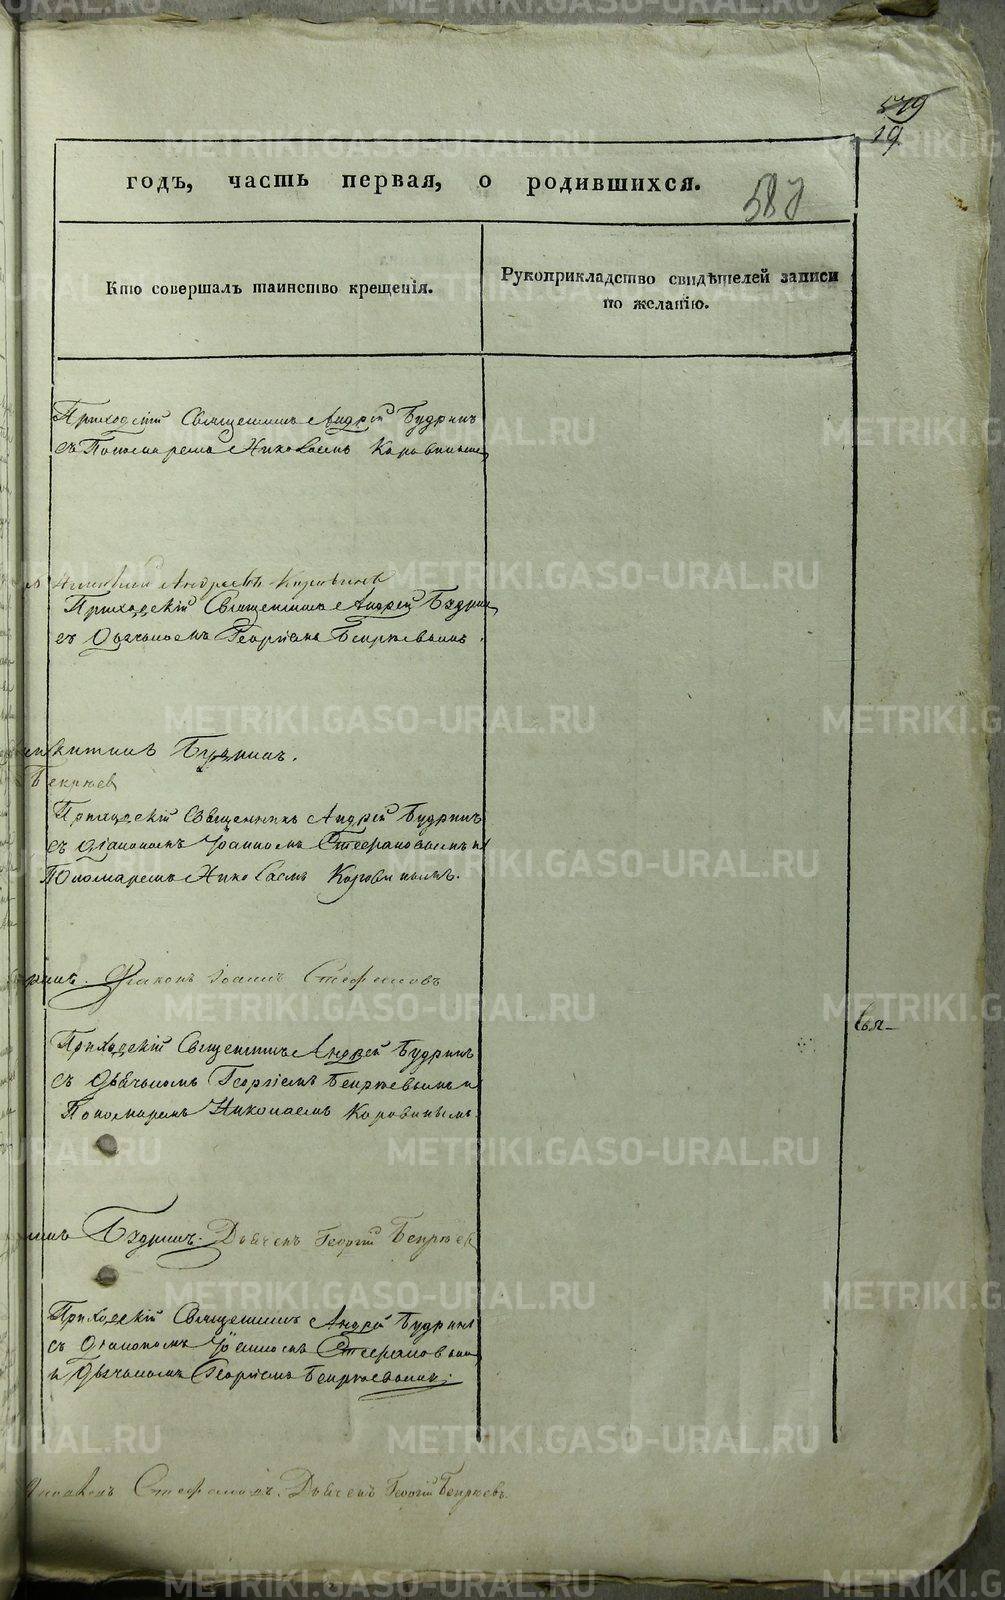 579
19
годъ, часть первая, о родившихся.
580
Кто совершалъ таинство крещенія.
Рукоприкладство свидѣтелей записи
по желанію.
Приходскій Священникъ Андрей Будринъ
съ Пономаремъ Николаемъ Коровинымъ
Андреевъ Коровинъ
Приходскій Священникъ Андрей Будринъ
съ Дьячкомъ Георгіемъ
Будринъ.
Приходскій Священникъ Андрей Будринъ
съ Діакономъ Іоанномъ Стефановымъ и
Пономаремъ Николаемъ Коровинымъ.
Діаконъ Іоаннъ Стефановъ
Приходскій Священникъ Андрей Будринъ
съ Дьячкомъ Георгіемъ и
Пономаремъ Николаемъ Коровинымъ.
Будринъ. Дьячекъ Георгій
Приходскій Священникъ Андрей Будринъ
съ Діакономъ Іоанномъ Стефановым
и Дьячкомъ Георгіемъ
Стефановъ. Дьячекъ Георгій
METRIKI.GASO-URAL.RU